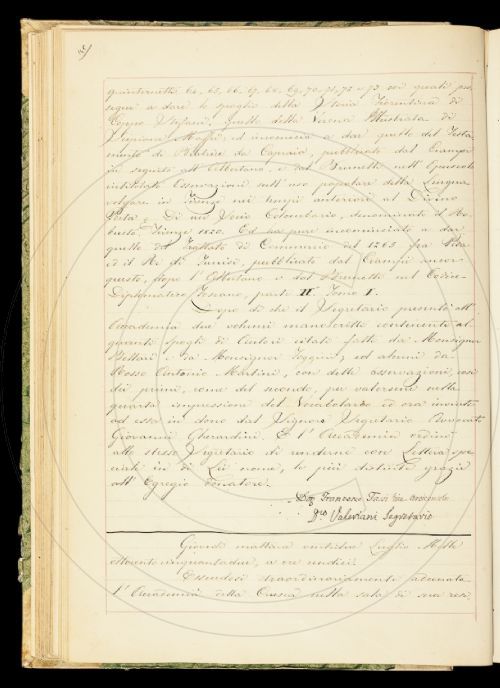 quinternetti 64, 65, 66, 67, 68, 69, 70, 71, 72 e 73 coi quali pro
segue a dare lo spoglio della Storia Fiorentina di
quello della Verona Illustrata di
Scipione Maffei ed incomincia a dar quello del Testa
mento di Beatrice da Capraia, pubblicato dal Ciampi
in seguito all' e dal Brunetti nell' Opuscolo
intitolato Osservazioni sull' uso popolare della Lingua
volgare in Firenze nei tempi anteriori al Divino
Poeta e Di un Vecchio Colombario, denominato il Ro-
Firenze 1820. Ed ha pure incominciato a dar
quello del Trattato di Commercio del 1265 fra Pisa
ed il Re di Tunisi, pubblicato dal Ciampi ancor
questo, dopo l' e dal Brunetti nel Codice
Diplomatico Toscano, parte II. Tomo I.
Dopo di che il Segretario presentò all'
Accademia due volumi manoscritti contenente al-
quanti spogli di Autori citati fatti da Monsignor
Bottari e da Monsignor Foggini, ed alcuni da
Rosso Antonio Martini, con delle osservazioni, così
dei primi, come del secondo, per valersene nella
quarta impressione del Vocabolario ed ora inviate
ad essa in dono dal Signore Segretario Avvocato
Giovanni Gherardini. E l' Accademia ordinò
allo stesso Segretario di renderne con Lettera spe-
ciali in di Lei nome, le più distinte grazie
all' Egregio Donatore.
Francesco Tassi Vice Arciconsolo
Valeriani Segretario
Giovedì mattina ventidue Luglio Mille
ottocento cinquantadue, a ore undici.
Essendosi straordinariamente adunata
l' Accademia della Crusca nella sala di sua resi-